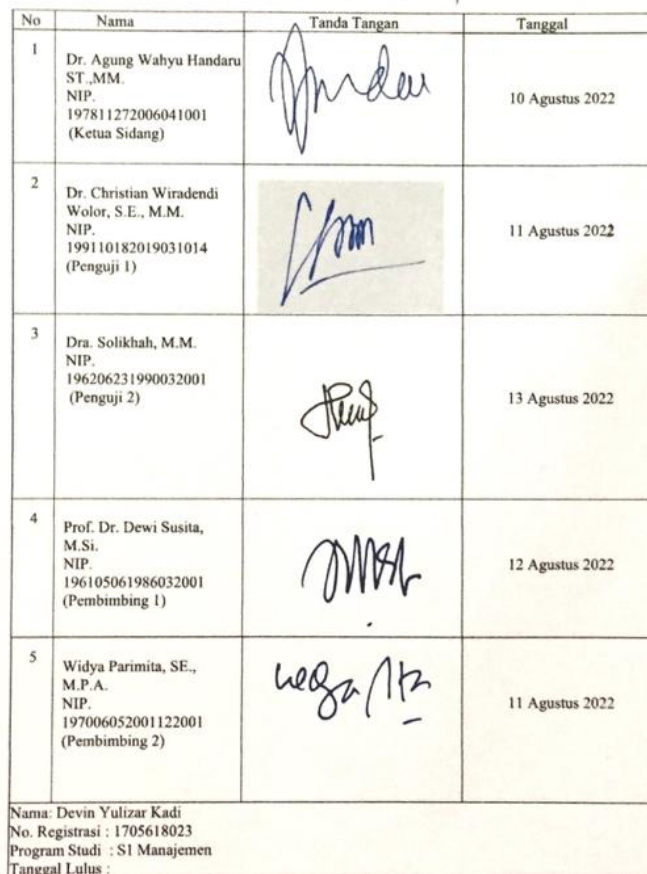 No Nama Tanda Tangan Tanggal
1
Dr. Agung Wahyu Handaru
ST.,MM.
NIP.
197811272006041001
(Ketua Sidang)
10 Agustus 2022
2
Dr. Christian Wiradendi
Wolor, S.E., M.M.
NIP.
199110182019031014
(Penguji 1)
11 Agustus 2022
3
Dra. Solikhah, M.M.
NIP.
196206231990032001
(Penguji 2)
13 Agustus 2022
4
Prof. Dr. Dewi Susita,
M.Si.
NIP.
196105061986032001
(Pembimbing 1)
12 Agustus 2022
5
Widya Parimita, SE.,
M.P.A.
NIP.
197006052001122001
(Pembimbing 2)
11 Agustus 2022
Nama: Devin Yulizar Kadi
No. Registrasi : 1705618023
Program Studi : S1 Manajemen
Tanggal Lulus :